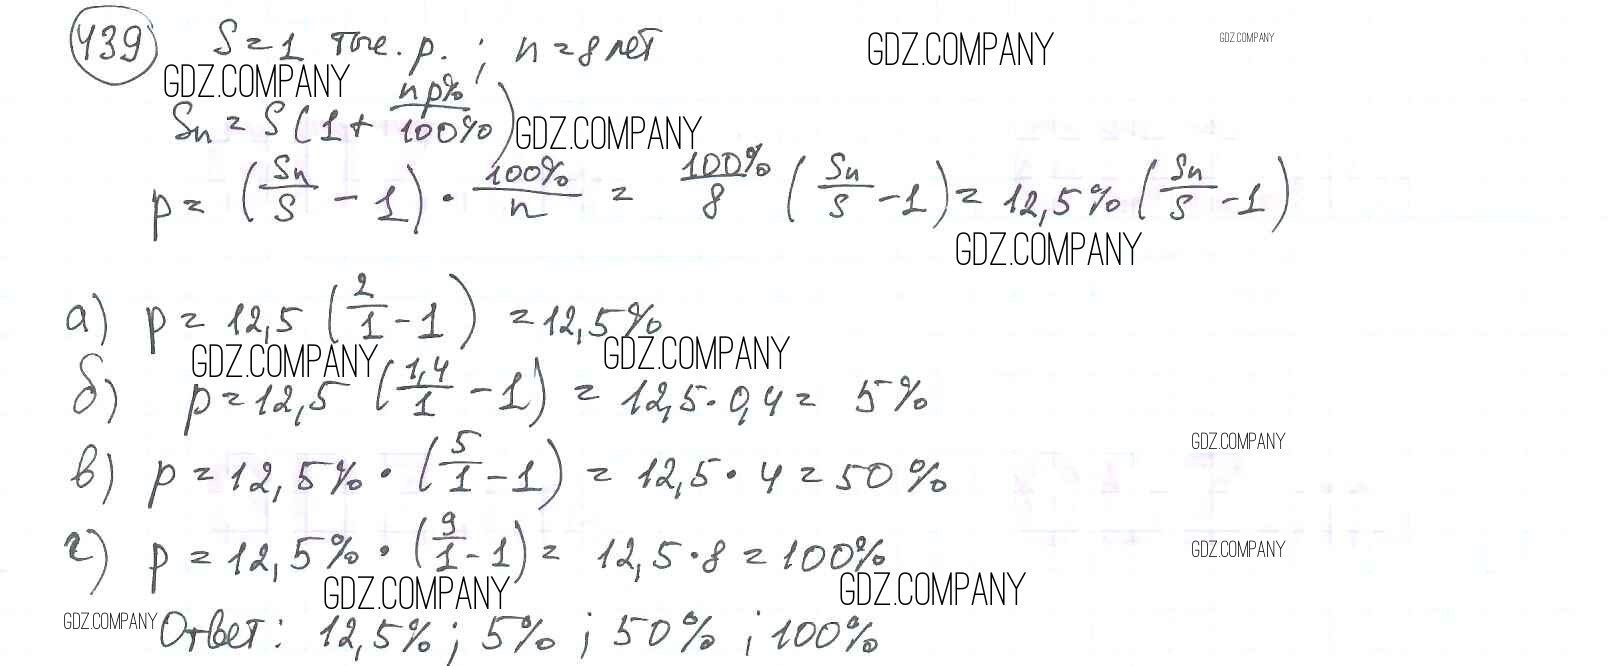 439 S = 1 тыс. р. ; n = 8 лет GDZ.COMPANY GDZ.COMPANY
GDZ.COMPANY
Sn = S (1 + np%/100%) GDZ.COMPANY
p = (Sn/S - 1) · 100%/n = 100%/8 (Sn/S - 1) = 12,5% (Sn/S - 1)
GDZ.COMPANY
а) p = 12,5 (2/1 - 1) = 12,5%
GDZ.COMPANY GDZ.COMPANY
б) p = 12,5 (1,4/1 - 1) = 12,5 · 0,4 = 5%
GDZ.COMPANY
в) p = 12,5% · (5/1 - 1) = 12,5 · 4 = 50%
г) p = 12,5% · (9/1 - 1) = 12,5 · 8 = 100% GDZ.COMPANY
GDZ.COMPANY GDZ.COMPANY
GDZ.COMPANY Ответ: 12,5% ; 5% ; 50% ; 100%